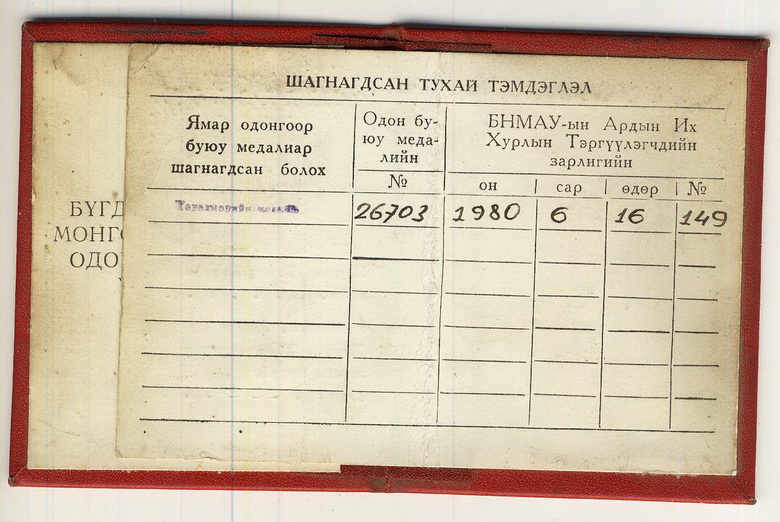 ШАГНАГДСАН ТУХАЙ ТЭМДЭГЛЭЛ
Ямар одонгоор
буюу медалиар
шагнагдсан болох
Одон бу-
юу меда-
лийн
№
БНМАУ-ын Ардын Их
Хурлын Тэргүүлэгчдийн
зарлигийн
он сар өдөр №
26703 1980 6 16 149
БҮГД
МОНГО
ОДО